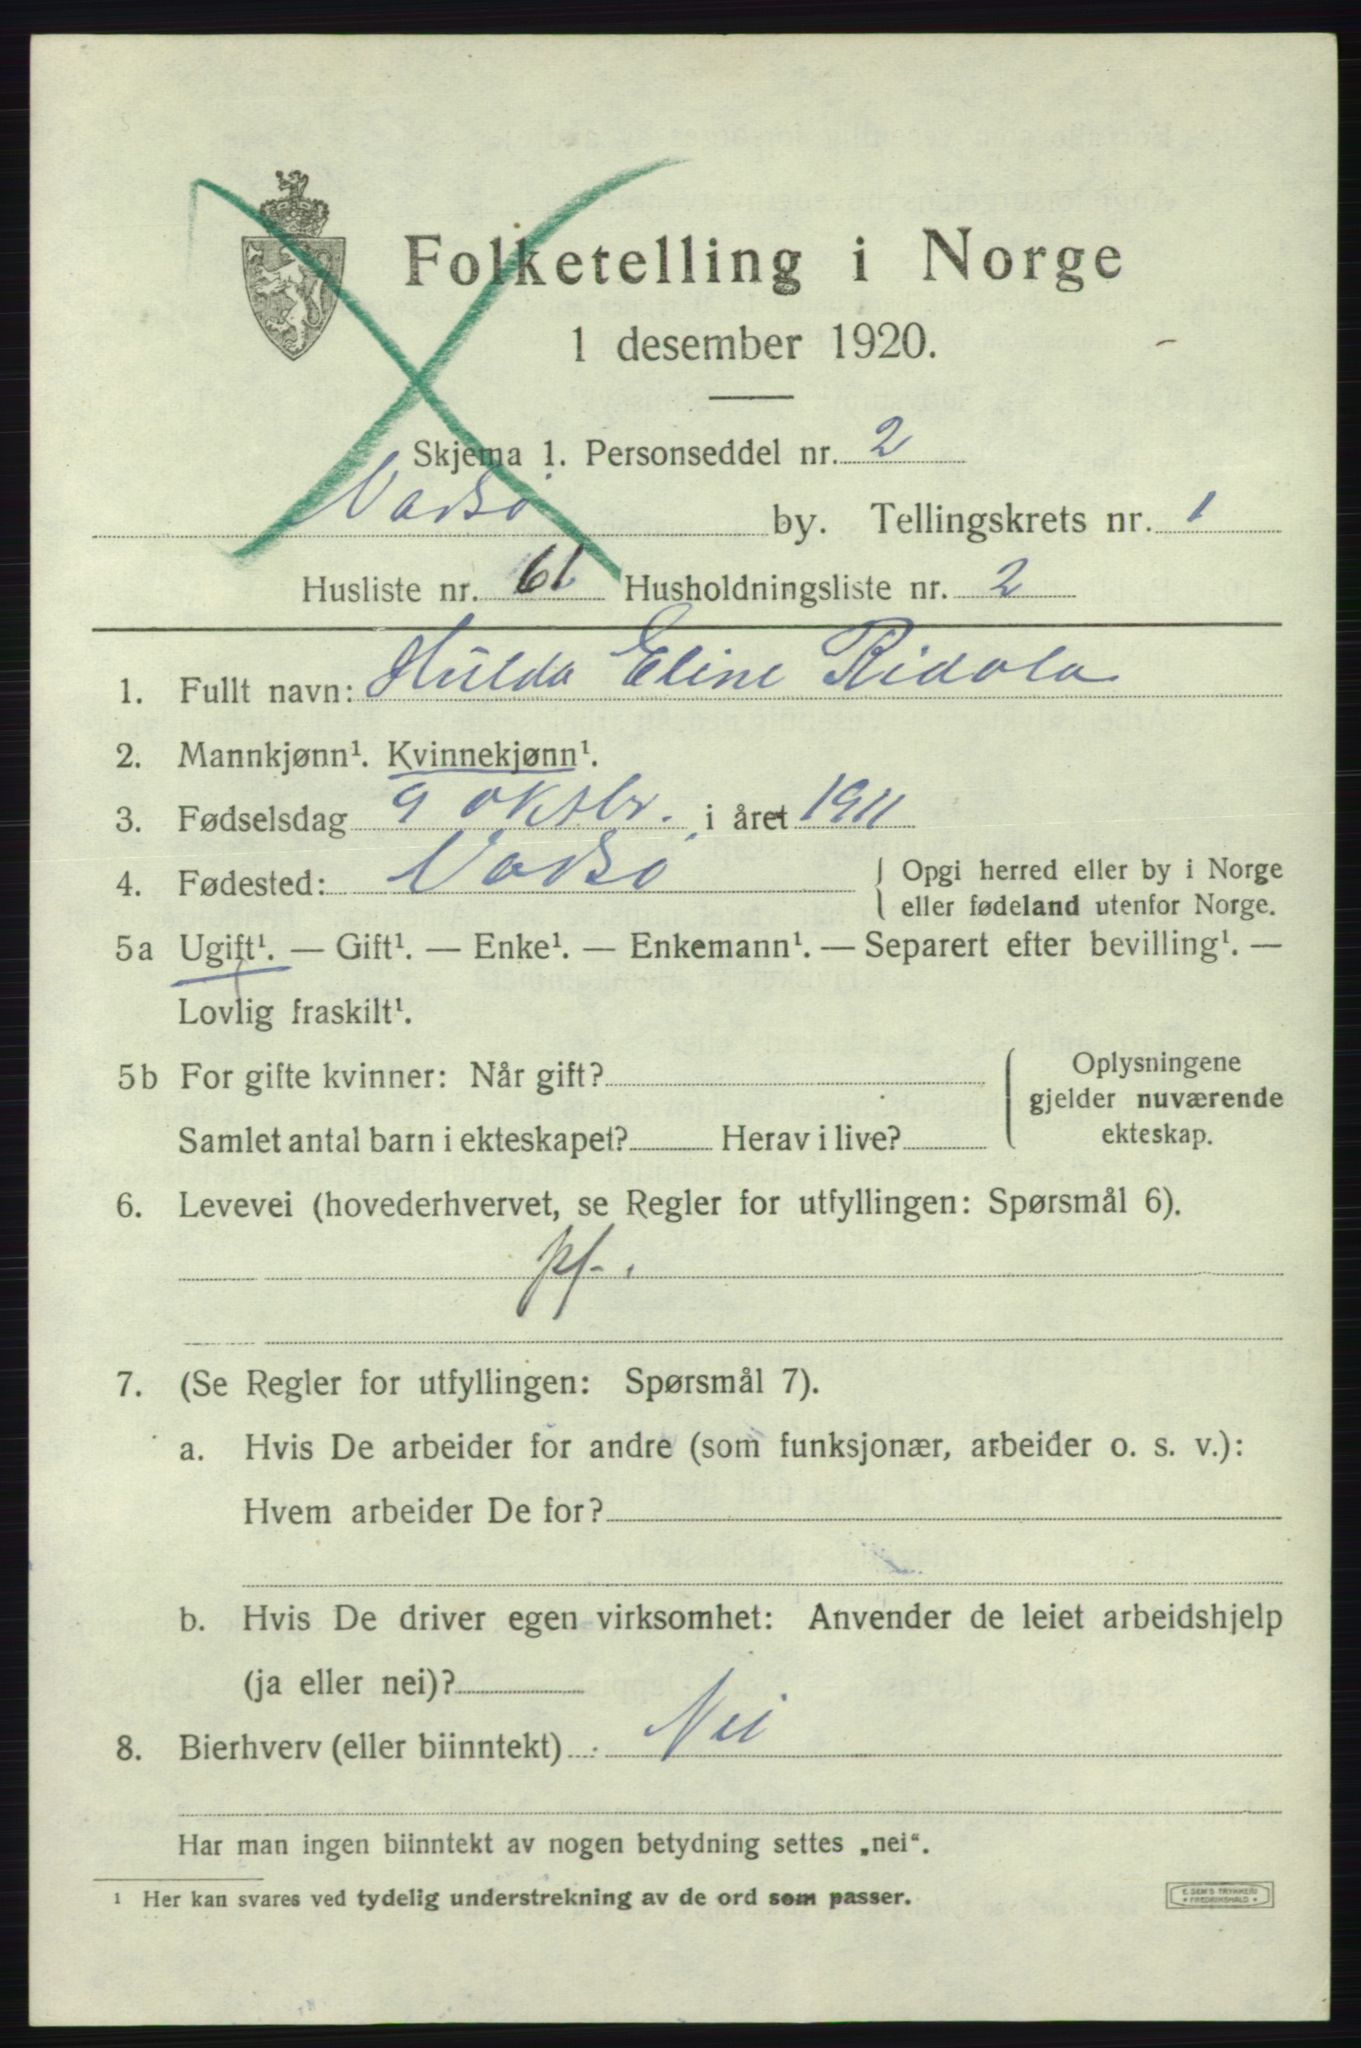 Folketelling i Norge
1 desember 1920.
Skjema 1. Personseddel nr. 2
Vadsø by. Tellingskrets nr. 1
Husliste nr. 61 Husholdningsliste nr. 2
1. Fullt navn: Hulda Eline Ridola
2. Mannkjønn¹. Kvinnekjønn¹.
3. Fødselsdag 9 oktbr. i året 1911
4. Fødested: Vadsø { Opgi herred eller by i Norge
eller fødeland utenfor Norge.
5a Ugift¹. — Gift¹. — Enke¹. — Enkemann¹. — Separert efter bevilling¹. —
Lovlig fraskilt¹.
5b For gifte kvinner: Når gift? { Oplysningene
gjelder nuværende
Samlet antal barn i ekteskapet? Herav i live? ekteskap.
6. Levevei (hovederhvervet, se Regler for utfyllingen: Spørsmål 6).
pf.
7. (Se Regler for utfyllingen: Spørsmål 7).
a. Hvis De arbeider for andre (som funksjonær, arbeider o. s. v.):
Hvem arbeider De for?
b. Hvis De driver egen virksomhet: Anvender de leiet arbeidshjelp
(ja eller nei)?
8. Bierhverv (eller biinntekt) Nei
Har man ingen biinntekt av nogen betydning settes „nei“.
¹ Her kan svares ved tydelig understrekning av de ord som passer.
E. SEM'S TRYKKERI
FREDRIKSHALD